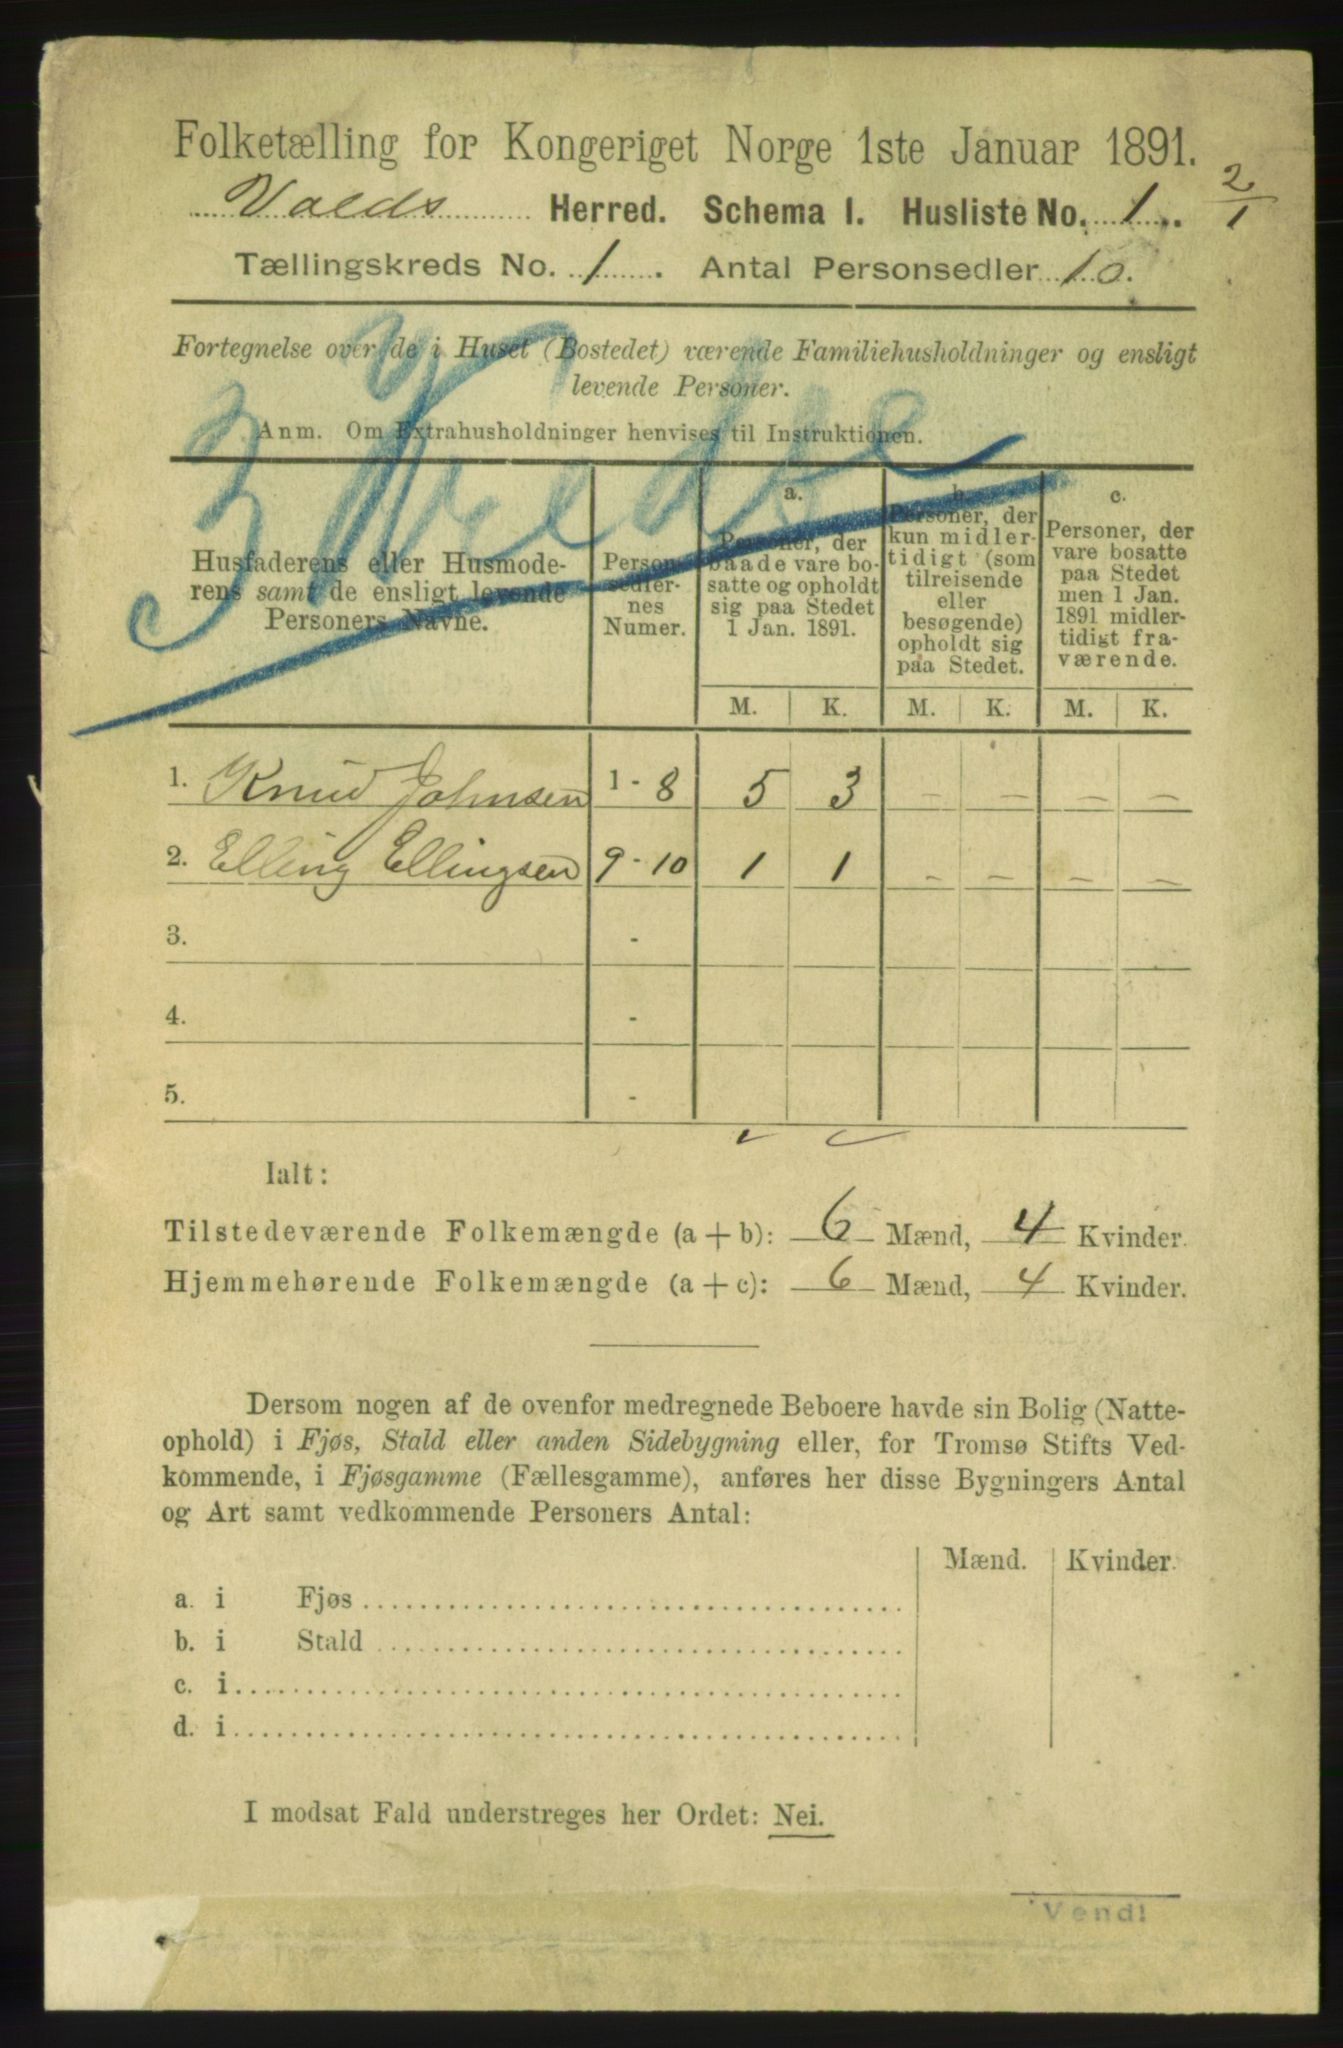 Folketælling for Kongeriget Norge 1ste Januar 1891.
Herred. Schema I. Husliste No. 1. 2/1
Tællingskreds No. 1. Antal Personsedler 10.
Fortegnelse over de i Huset (Bostedet) værende Familiehusholdninger og ensligt
levende Personer.
Anm. Om Extrahusholdninger henvises til Instruktionen.
Husfaderens eller Husmode-
rens samt de ensligt levende
Personers Navne.
Person-
sedler-
nes
Numer.
a.
Personer, der
baade vare bo-
satte og opholdt
sig paa Stedet
1 Jan. 1891.
b.
Personer, der
kun midler-
tidigt (som
tilreisende
eller
besøgende)
opholdt sig
paa Stedet.
c.
Personer, der
vare bosatte
paa Stedet
men 1 Jan.
1891 midler-
tidigt fra-
værende.
M. K. M. K. M. K.
1. Knud Johnsen 1 - 8 5 3 – – – –
2. Elling Ellingsen 9 - 10 1 1 – – – –
3. -
4. -
5. -
Ialt:
Tilstedeværende Folkemængde (a + b): 6 Mænd, 4 Kvinder.
Hjemmehørende Folkemængde (a + c): 6 Mænd, 4 Kvinder.
Dersom nogen af de ovenfor medregnede Beboere havde sin Bolig (Natte-
ophold) i Fjøs, Stald eller anden Sidebygning eller, for Tromsø Stifts Ved-
kommende, i Fjøsgamme (Fællesgamme), anføres her disse Bygningers Antal
og Art samt vedkommende Personers Antal:
Mænd. Kvinder.
a. i Fjøs
b. i Stald
c. i
d. i
I modsat Fald understreges her Ordet: Nei.
Vend!